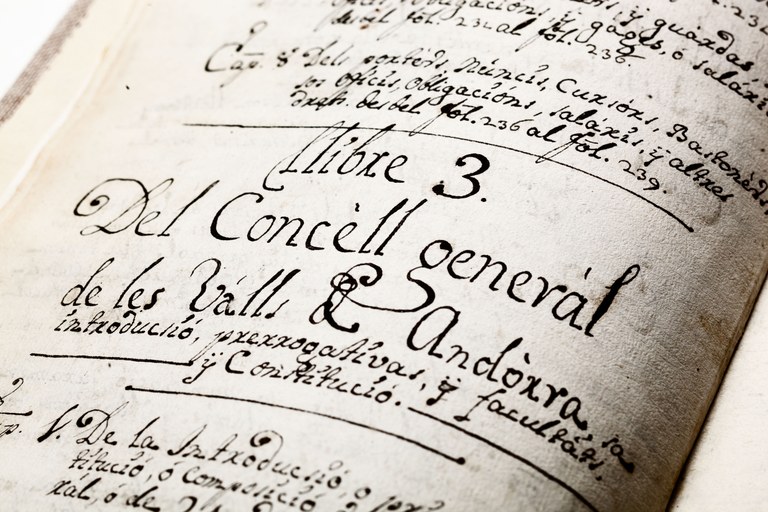 obligacións, ÿ gages, ó salári
desdel fol. 232 al fol. 236.
Cap. 8º Dels portérs, Núncis, Cursórs, Bastonérs
sos oficis, obligacións, saláris, ÿ altres
desdel fol. 236 al fol. 239.
llibre 3.
Del Concèll generàl
de les Válls & Andòrra, sa
introducció, prerrogativas, ÿ facultáts,
ÿ Constitució.
1. De la Introducció, o
titució, ó composició,
rál, ó de